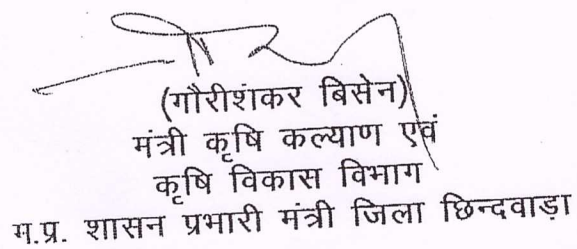 (गौरीशंकर बिसेन)
मंत्री कृषि कल्याण एवं
कृषि विकास विभाग
म.प्र. शासन प्रभारी मंत्री जिला छिन्दवाड़ा